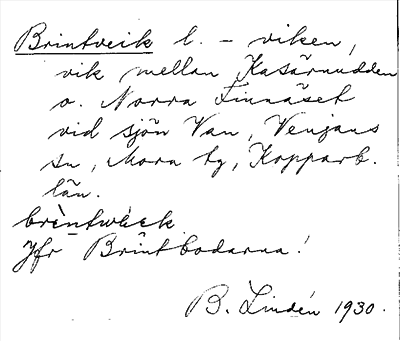 Brintveik l. - viken,
vik mellan Kasärnudden
o. Norra Finnäset
vid sjön Van, Venjans
sn, Mora tg, Kopparb.
län.
brèntwáik
Jfr Brintbodarna!
B. Lindén 1930.